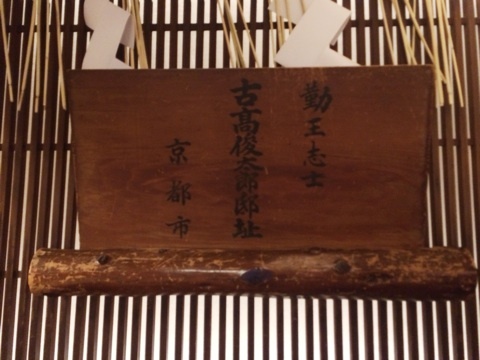 勤王志士
古髙俊太郎邸址
京都市